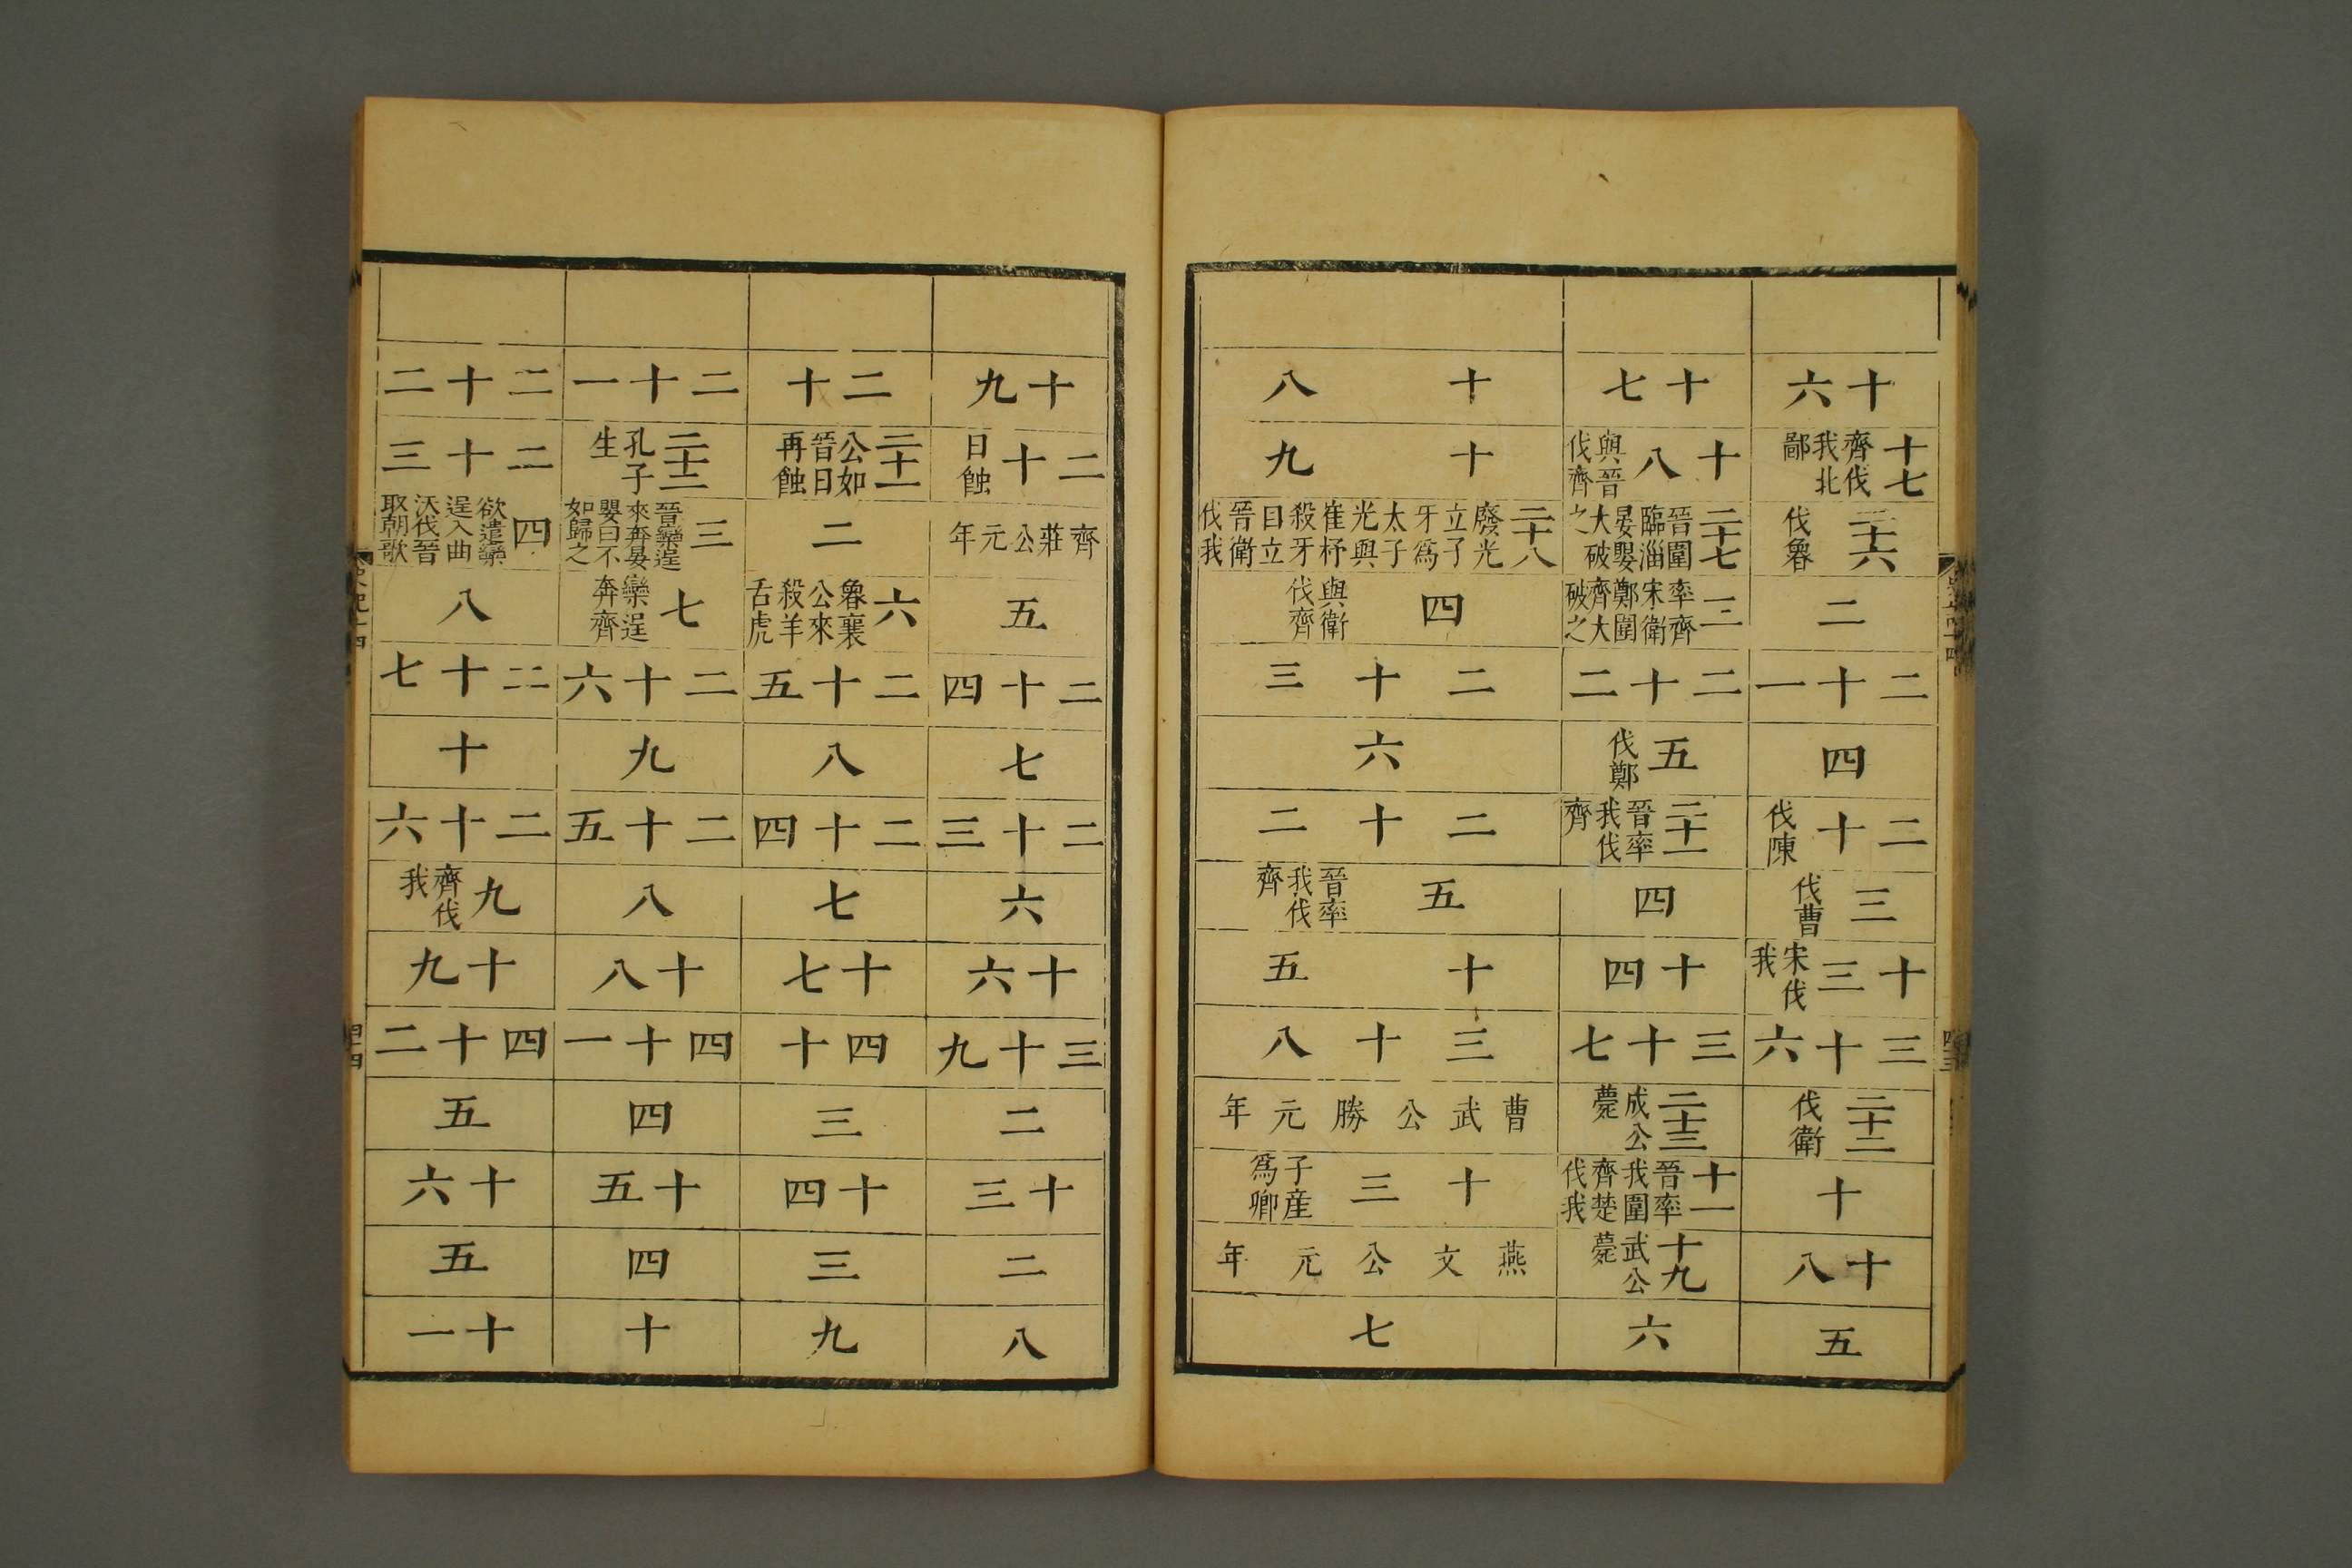 十六
十七 齊伐我北鄙
二十六 伐魯
二
二十一
四
二十 伐陳
三 伐曹
十三 宋伐我
三十六
二十二 伐衛
十
十八
五
十七
十八 與晉伐齊
二十七 晉圍臨淄晏嬰大破之
三 率齊宋衛鄭圍齊大破之
二十二
五 伐鄭
二十一 晉率我伐齊
四
十四
三十七
二十三 成公薨
十一 晉率我圍齊楚伐我
十九 武公薨
六
十八
十九
二十八 廢光立子牙爲太子光與崔杼殺牙自立晉衛伐我
四 與衛伐齊
二十三
六
二十二
五 晉率我伐齊
十五
三十八
曹武公勝元年
十三 子産爲卿
燕文公元年
七
十九
二十 日蝕
齊莊公元年
五
二十四
七
二十三
六
十六
三十九
二
十三
二
八
二十
二十一 公如晉日再蝕
二
六 魯襄公來殺羊舌虎
二十五
八
二十四
七
十七
四十
三
十四
三
九
二十一
二十二 孔子生
三 晉欒逞來奔晏嬰曰不如歸之
七 欒逞奔齊
二十六
九
二十五
八
十八
四十一
四
十五
四
十
二十二
二十三
四 欲遣欒逞入曲沃伐晉取朝歌
八
二十七
十
二十六
九 齊伐我
十九
四十二
五
十六
五
十一